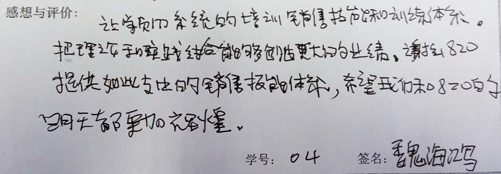 感想与评价: 让学员的系统的培训销售技能和训练体系。
把理论和实践结合能够创造更大的业绩。谢谢820
提供如此支出的销售技能体系,希望我们和820的
明天都更加光辉煌。
学号: 04 签名: 魏海鸿